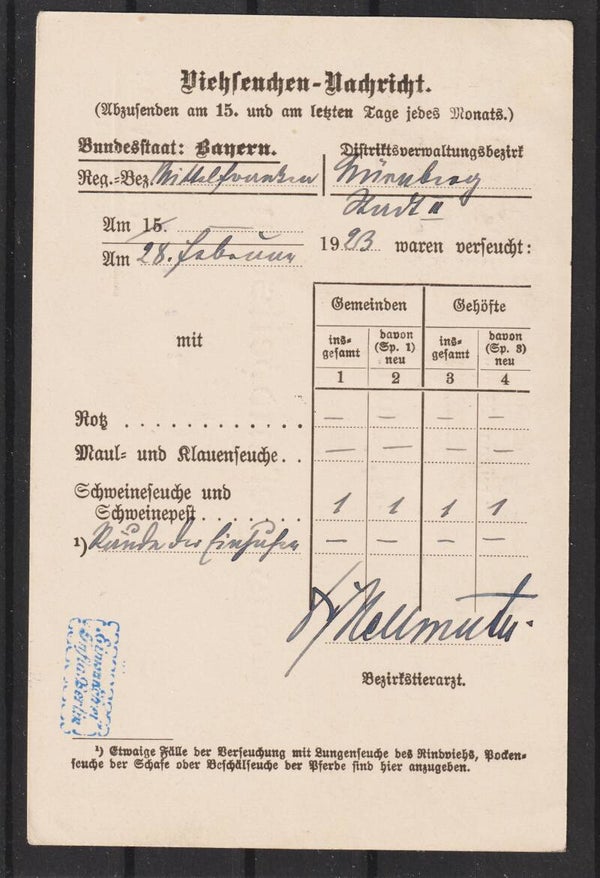 Viehseuchen-Nachricht.
(Abzusenden am 15. und am letzten Tage jedes Monats.)
Bundesstaat: Bayern.
Distriktsverwaltungsbezirk
Reg.-Bez. Mittelfranken
Nürnberg
Stadt II
Am 15.
Am 28. Februar 1923 waren verseucht:
Gemeinden Gehöfte
mit
ins- gesamt davon (Sp. 1) neu ins- gesamt davon (Sp. 3) neu
1 2 3 4
Rotz . . . . . . . . . . . . — — — —
Maul- und Klauenseuche . . — — — —
Schweineseuche und
Schweinepest . . . . . . . . 1 1 1 1
¹) Räude der Einhufer — — — —
Dr Hellmuth.
Bezirkstierarzt.
Infla Berlin
¹) Etwaige Fälle der Verseuchung mit Lungenseuche des Rindviehs, Pocken-
seuche der Schafe oder Beschälseuche der Pferde sind hier anzugeben.